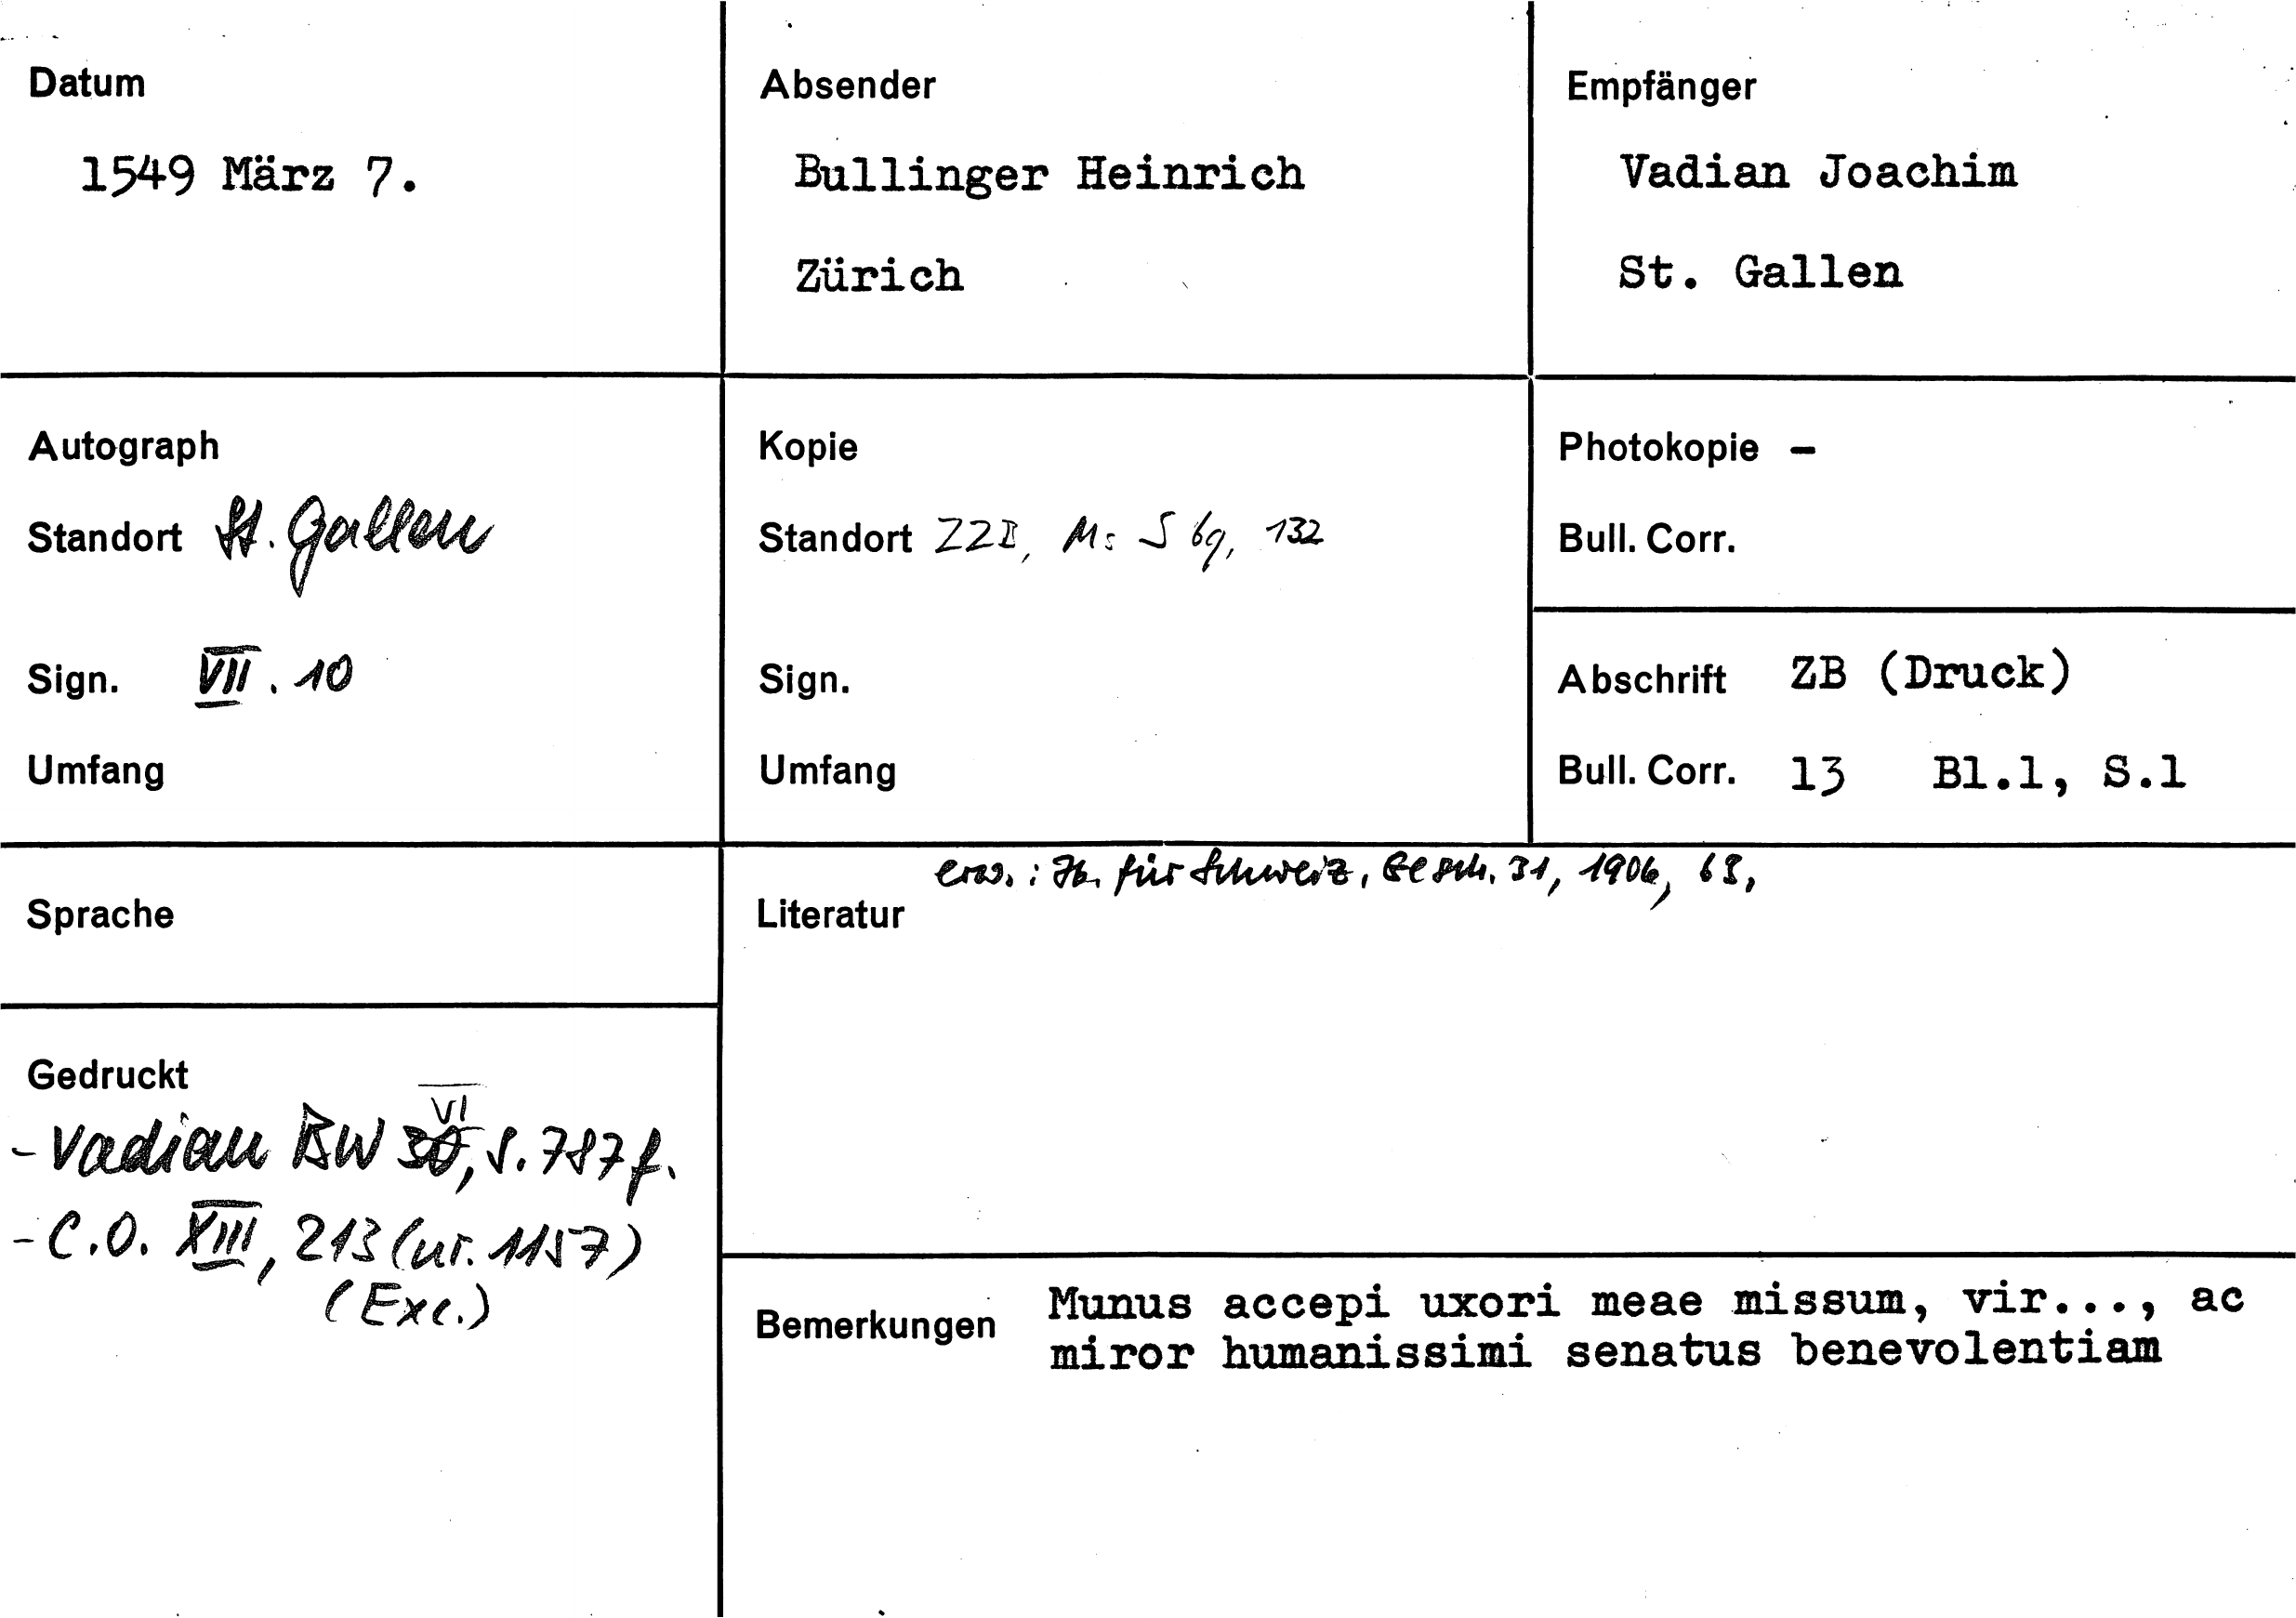 Datum
1549 März 7.
Absender
Bullinger Heinrich
Zürich
Empfänger
Vadian Joachim
St. Gallen
Autograph
Standort St. Gallen
Sign. VII. 10
Umfang
Kopie
Standort ZZB, Ms S 69, 132
Sign.
Umfang
Photokopie -
Bull. Corr.
Abschrift ZB (Druck)
Bull. Corr. 13 Bl.1, S.1
Sprache
Gedruckt
- Vadian BW VI, S. 787 f.
- C.O. XIII, 213 (nr. 1157)
(Exc.)
erw.: Jb. für Schweiz. Gesch. 31, 1906, 63,
Literatur
Bemerkungen Munus accepi uxori meae missum, vir..., ac
miror humanissimi senatus benevolentiam